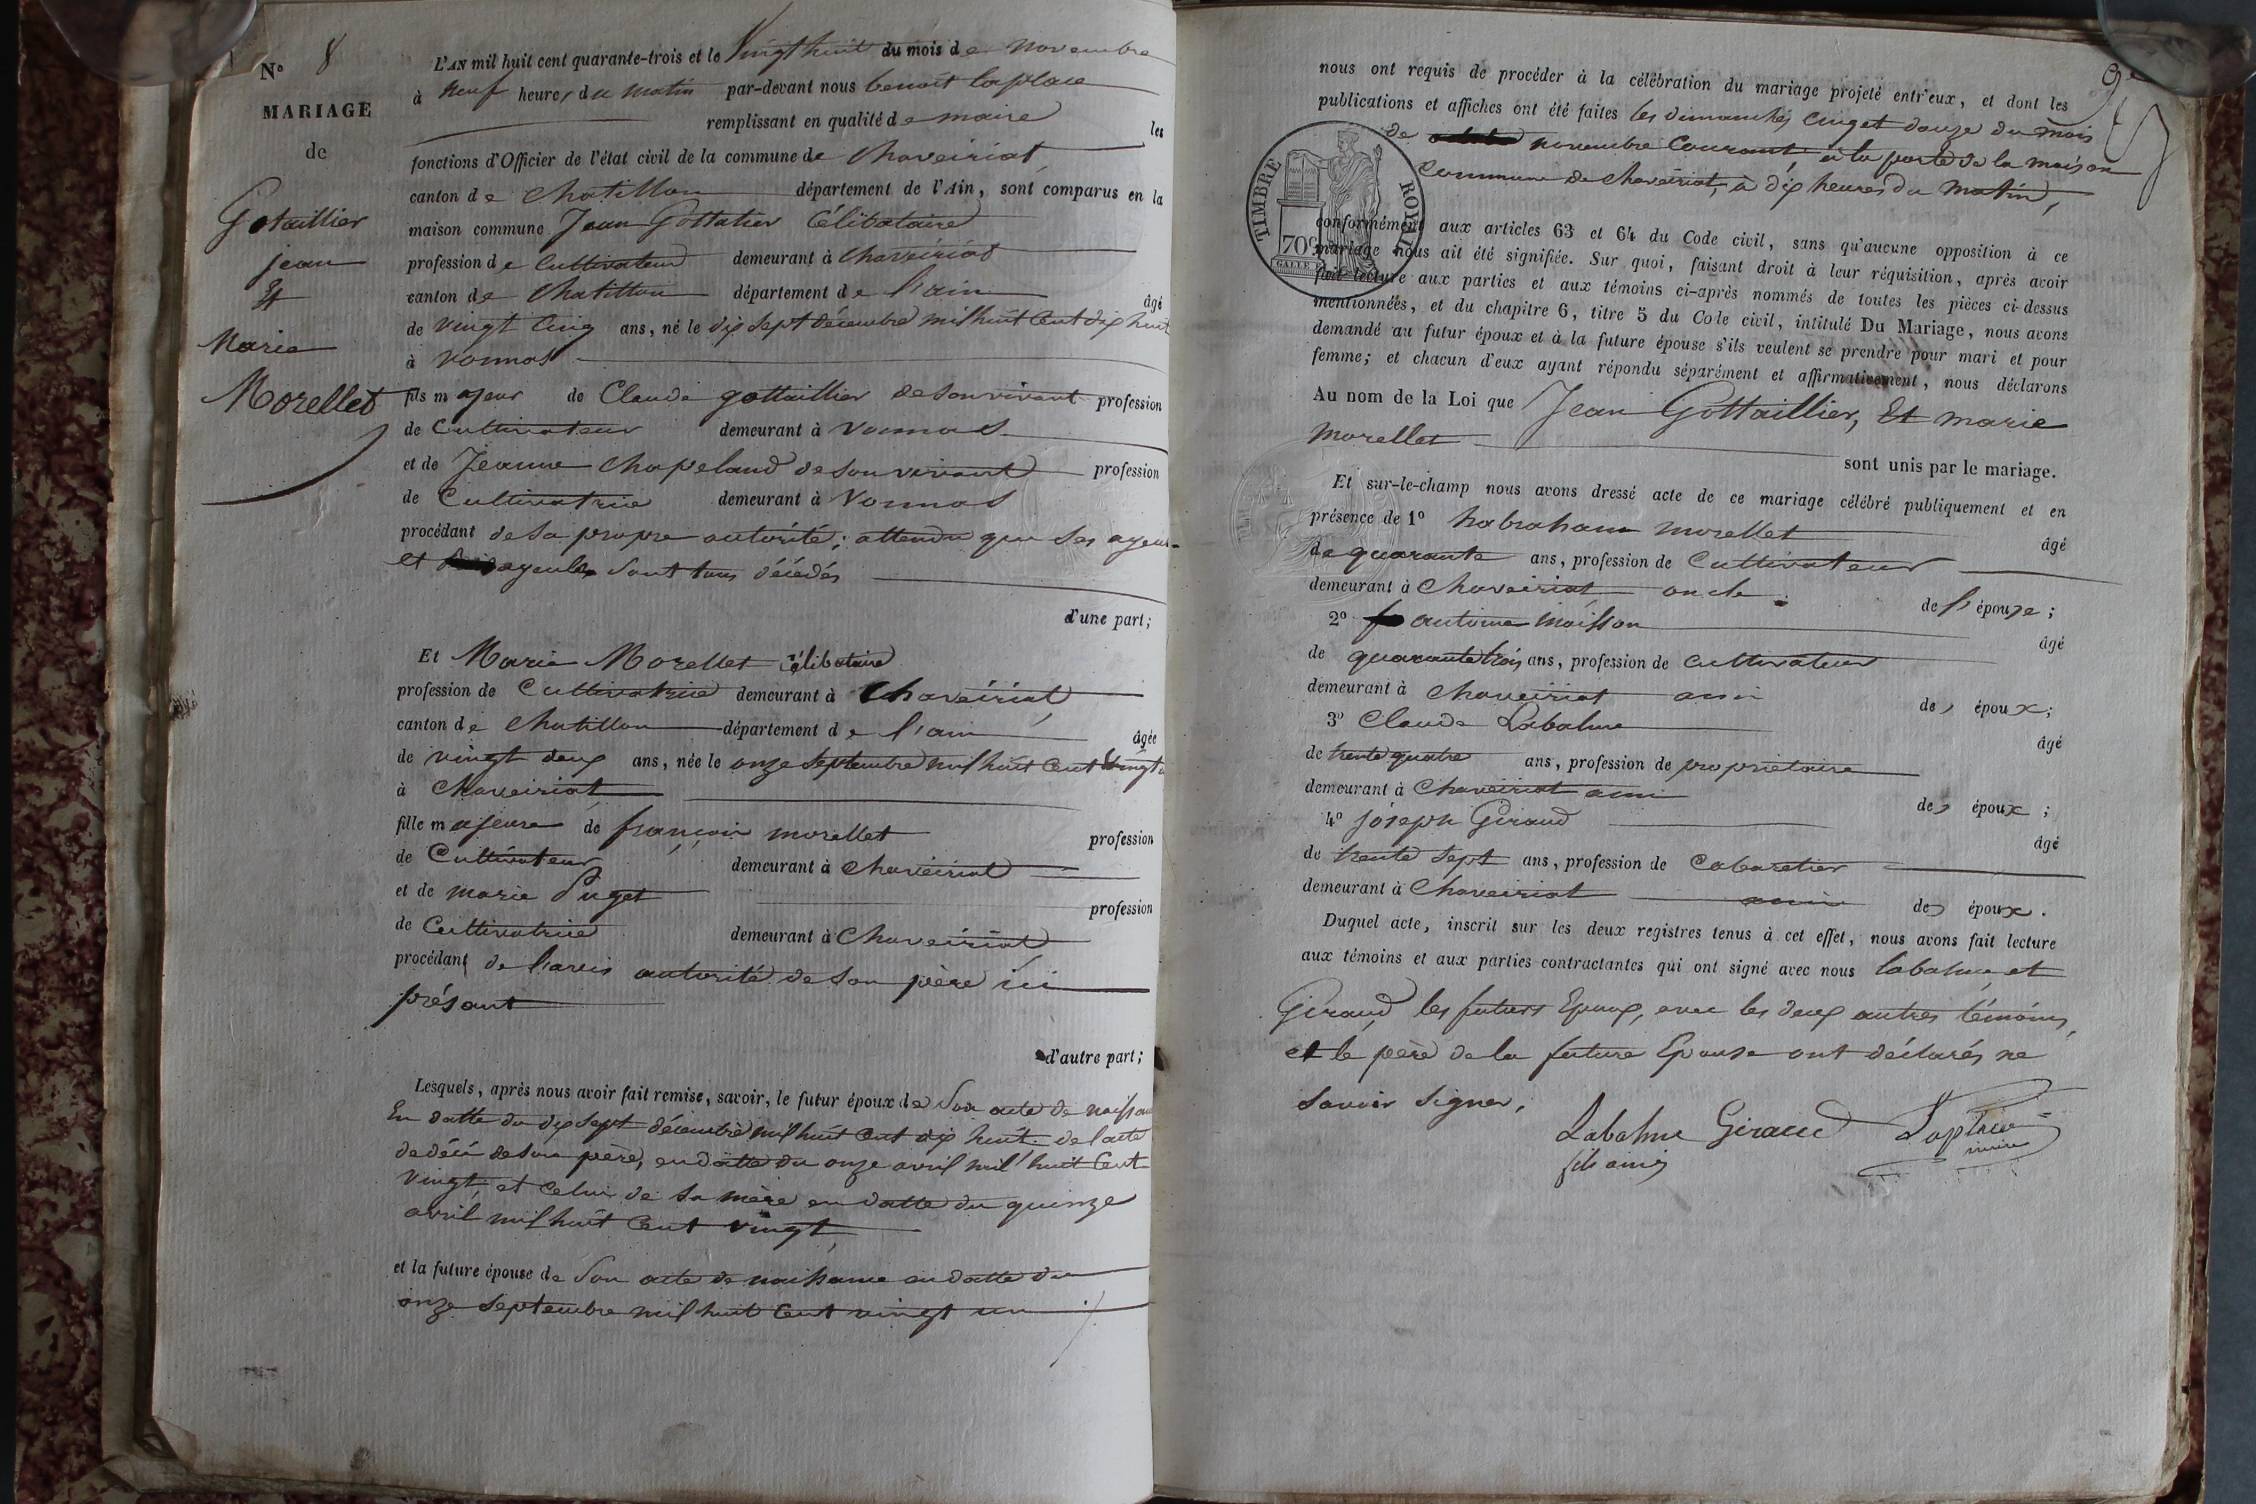 N° 8
MARIAGE
de
Gotaillier
jean
Et
Marie
Morellet
L'AN mil huit cent quarante-trois et le Vingt huit du mois de novembre
à neuf heures du matin par-devant nous benoit laplace
remplissant en qualité de maire les
fonctions d'Officier de l'état civil de la commune de Chaveiriat
canton de Chatillon département de l'Ain, sont comparus en la
maison commune Jean Gottalier Célibataire
profession de Cultivateur demeurant à Chaveiriat
canton de Chatillon département de l'ain âgé
de vingt Cinq ans, né le dix sept décembre mil huit Cent dix huit
à vonnas
fils majeur de Claude gottaillier de son vivant profession
de Cultivateur demeurant à vonnas
et de Jeanne Chapeland de son vivant profession
de Cultivatrice demeurant à Vonnas
procédant de sa propre autorité; attendu que ses ayeuls
et ayeules sont tous décédés
d'une part;
Et Marie Morellet Célibataire
profession de Cultivatrice demeurant à Chaveiriat
canton de Chatillon département de l'ain âgée
de vingt deux ans, née le onze septembre mil huit Cent Vingt
à Chaveiriat
fille majeure de françois morellet profession
de Cultivateur demeurant à Chaveiriat
et de marie Puget profession
de Cultivatrice demeurant à Chaveiriat
procédant de l'avis autorité de son père ici
présant
d'autre part;
Lesquels, après nous avoir fait remise, savoir, le futur époux de Son acte de naissance
En datte du dix sept décembre mil huit Cent dix huit de l'acte
de décé de son père, en datte du onze avril mil huit Cent
vingt, et Celui de sa mère en datte du quinze
avril mil huit Cent vingt
et la future épouse de Son acte de naissance en datte du
onze septembre mil huit Cent vingt un
nous ont requis de procéder à la célébration du mariage projeté entr'eux, et dont les
publications et affiches ont été faites les dimanches Cinq et douze du mois
de novembre Courant à la porte de la maison
Commune de Chaveiriat, à dix heures du matin,
TIMBRE ROYAL
70c
conformément aux articles 63 et 64 du Code civil, sans qu'aucune opposition à ce
mariage nous ait été signifiée. Sur quoi, faisant droit à leur réquisition, après avoir
fait lecture aux parties et aux témoins ci-après nommés de toutes les pièces ci-dessus
mentionnées, et du chapitre 6, titre 5 du Code civil, intitulé Du Mariage, nous avons
demandé au futur époux et à la future épouse s'ils veulent se prendre pour mari et pour
femme; et chacun d'eux ayant répondu séparément et affirmativement, nous déclarons
Au nom de la Loi que Jean Gottaillier, Et marie
morellet
sont unis par le mariage.
Et sur-le-champ nous avons dressé acte de ce mariage célébré publiquement et en
présence de 1° habraham morellet âgé
de quarante ans, profession de Cultivateur
demeurant à Chaveiriat oncle de l'épouse;
2° antoine moisson âgé
de quarante trois ans, profession de cultivateur
demeurant à Chaveiriat ami de époux;
3° Claude Labalme âgé
de trente quatre ans, profession de propriétaire
demeurant à Chaveiriat ami de époux;
4° joseph Giraud âgé
de trente sept ans, profession de Cabaretier
demeurant à Chaveiriat ami de époux.
Duquel acte, inscrit sur les deux registres tenus à cet effet, nous avons fait lecture
aux témoins et aux parties contractantes qui ont signé avec nous labalme et
Giraud les futurs Epoux, avec les deux autres témoins,
et le père de la future Epouse ont déclarés ne
Savoir Signer.
Labalme Giraud Laplace
fils ainé maire